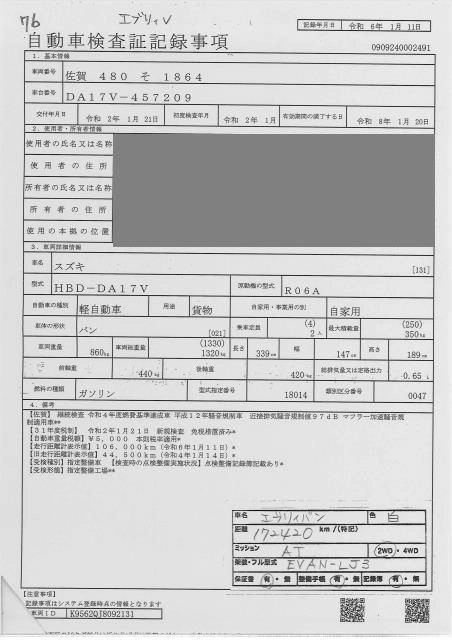 76 エブリィV
記録年月日 令和 6年 1月 11日
自動車検査証記録事項
0909240002491
1. 基本情報
車両番号 佐賀 480 そ 1864
車台番号 DA17V-457209
交付年月日 令和 2年 1月 21日 初度検査年月 令和 2年 1月 有効期間の満了する日 令和 8年 1月 20日
2. 使用者・所有者情報
使用者の氏名又は名称
使用者の住所
所有者の氏名又は名称
所有者の住所
使用の本拠の位置
3. 車両詳細情報
車名 スズキ [131]
型式 HBD-DA17V 原動機の型式 R06A
自動車の種別 軽自動車 用途 貨物 自家用・事業用の別 自家用
車体の形状 バン [021] 乗車定員 (4) 2人 最大積載量 (250) 350kg
車両重量 860kg 車両総重量 (1330) 1320kg 長さ 339cm 幅 147cm 高さ 189cm
前軸重 440kg 後軸重 420kg 総排気量又は定格出力 0.65 L
燃料の種類 ガソリン 型式指定番号 18014 類別区分番号 0047
4. 備考
【佐賀】 継続検査 令和4年度燃費基準達成車 平成12年騒音規制車 近接排気騒音規制値97dB マフラー加速騒音規
制適用車**
【31年度税制】 令和2年1月21日 新規検査 免税措置済み*
【自動車重量税額】 ¥5,000 本則税率適用*
【走行距離計表示値】 106,000km (令和6年1月11日)
【旧走行距離計表示値】 44,500km (令和4年1月14日)*
【受検種別】指定整備車 【検査時の点検整備実施状況】点検整備記録簿記載あり*
【受検形態】指定整備工場*
車名 エブリィバン 色 白
距離 172420 km/(特記)
ミッション AT 2WD・4WD
架装・フル型式 EVAN-LJ3
保証書 有・無 整備手帳 有・無 記録簿 有・無
【注意事項】
記録事項はシステム登録時点の情報となります
車両ID K9562QJ8092131